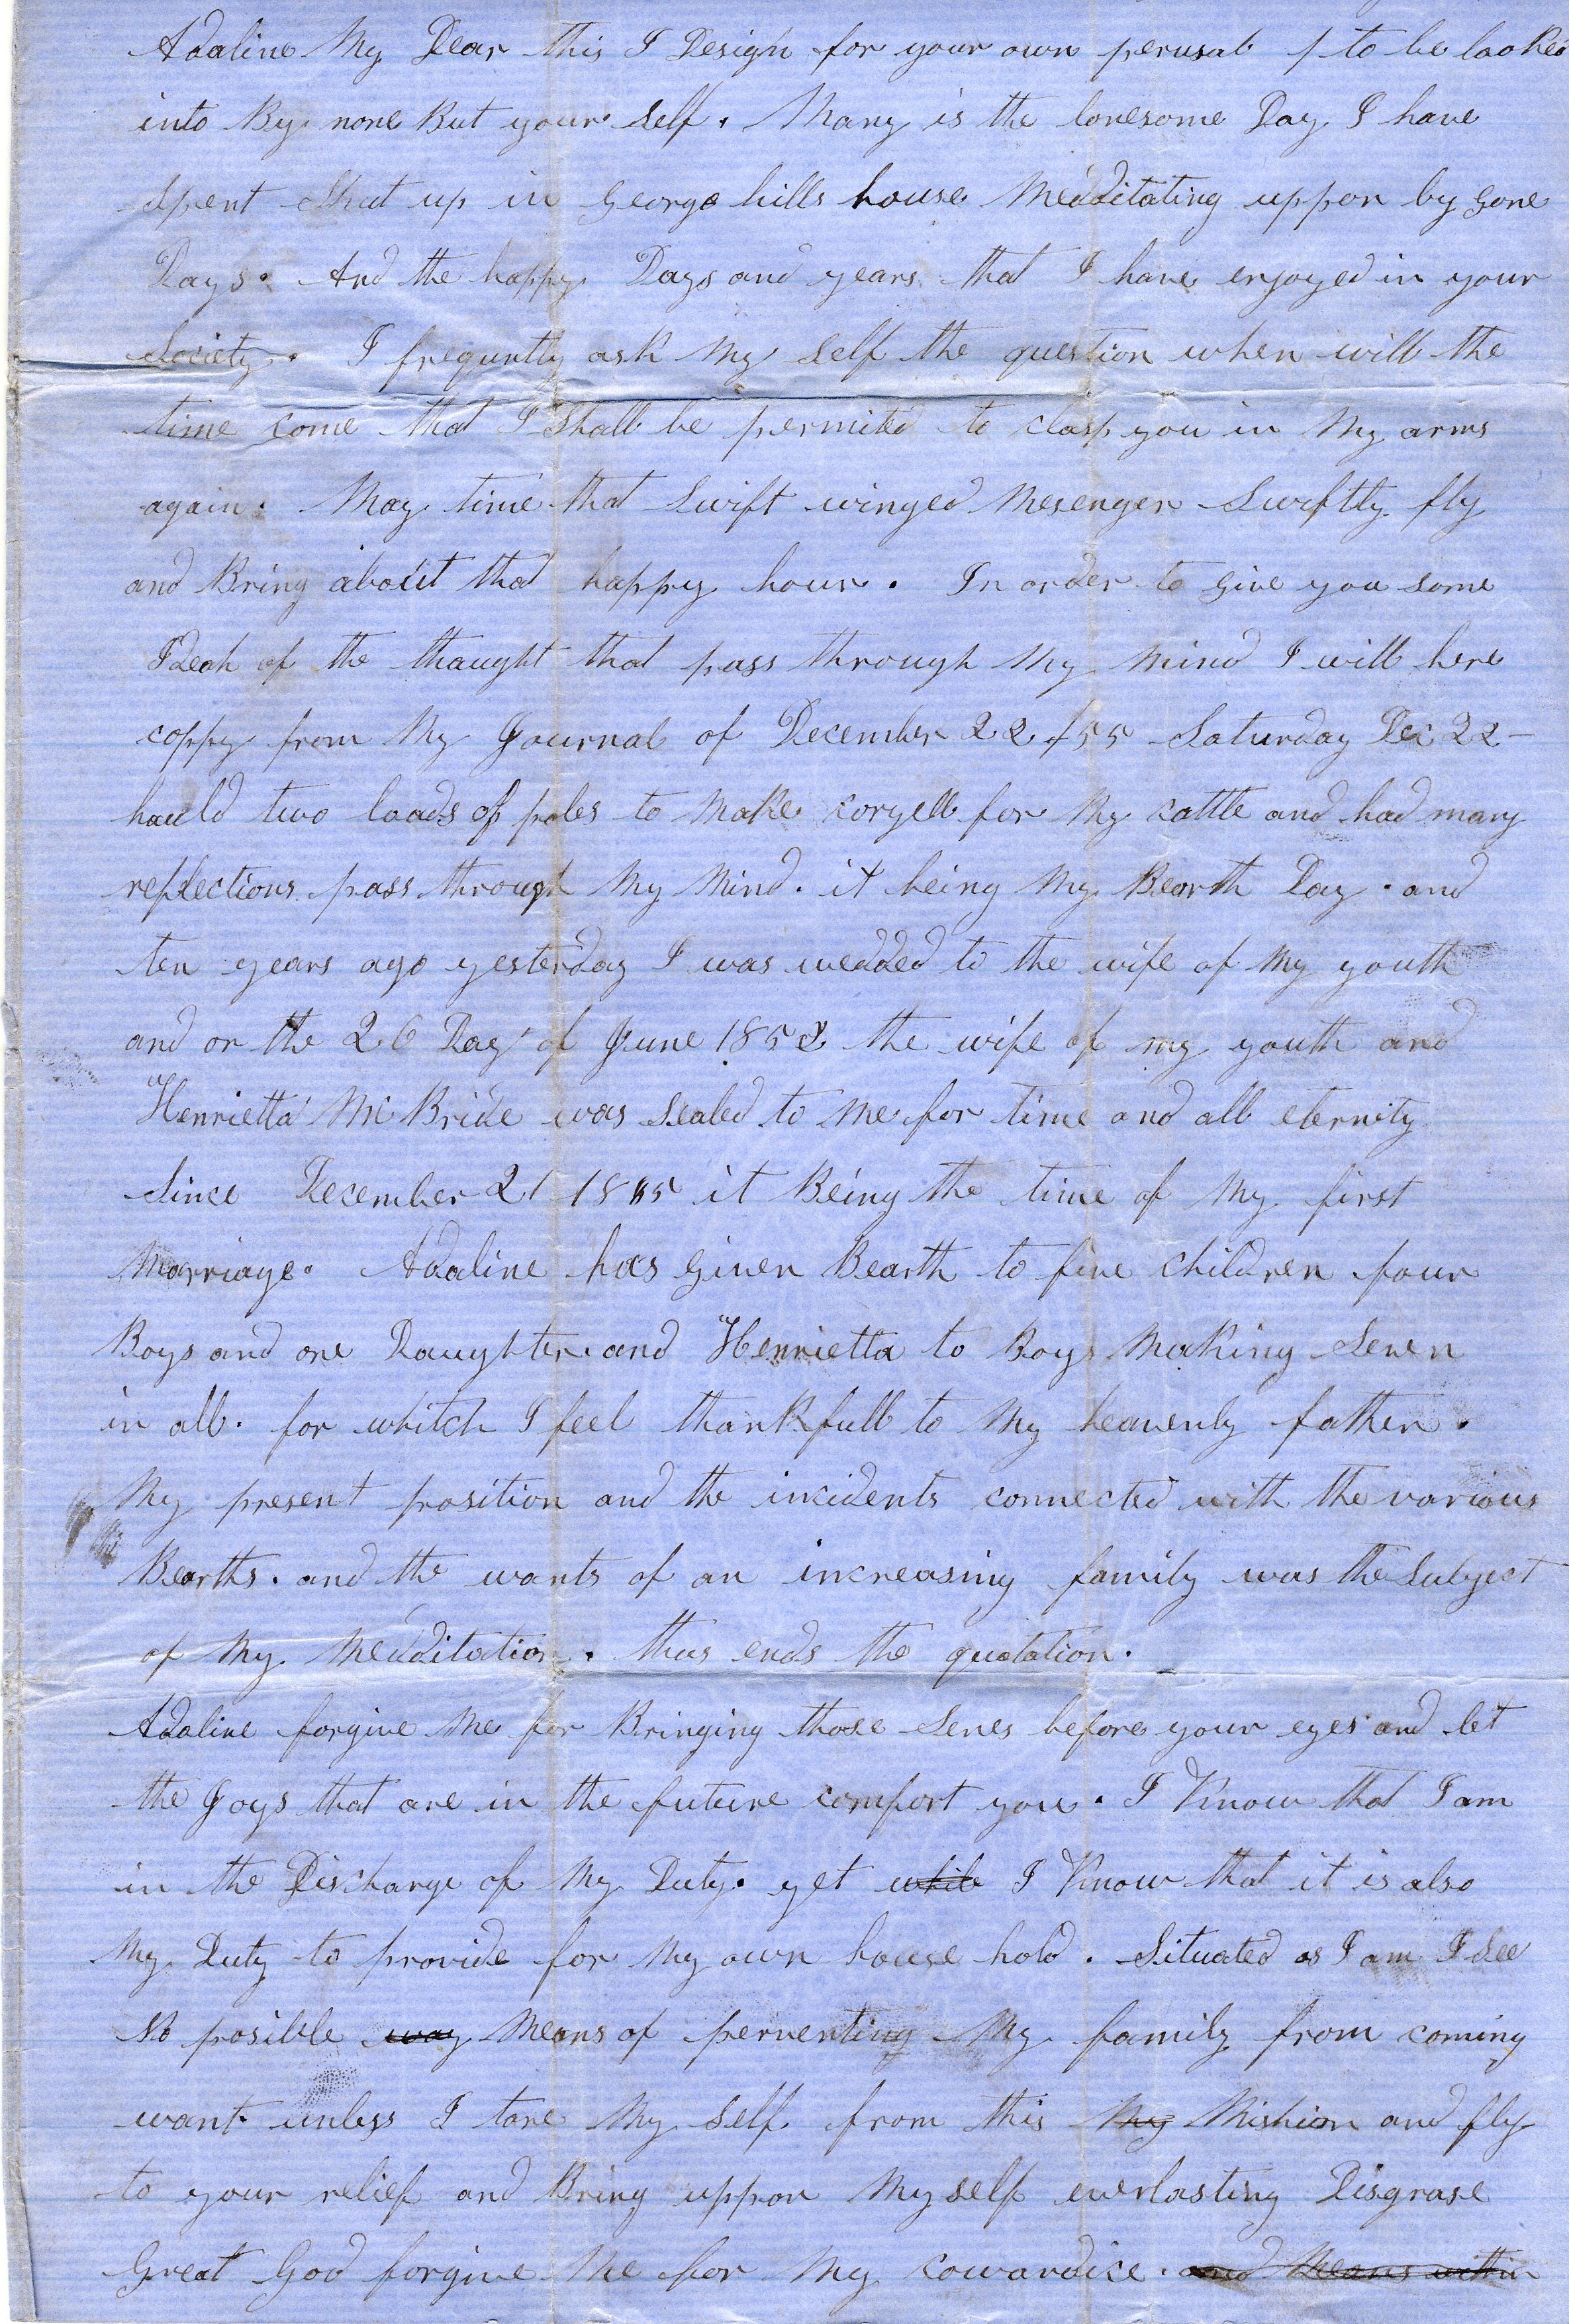 Adaline My Dear this I Design for your own perusal / to be looked
into By none But your self. Many is the lonesome Day I have
Spent Shut up in George hills house Medditating uppon by gone
Days. And the happy Days and years that I have enjoyed in your
Society. I frequntly ask My Self the question when will the
time come that I Shall be permited to clasp you in My arms
again. May time that Swift winged Mesenger Swiftly fly
and Bring about that happy hour. In order to give you some
Ideah of the thought that pass through My Mind I will here
coppy from My Journal of December 22 /55 Saturday Dec 22-
hauld two loads of poles to Make coryell for My cattle and had many
reflections pass through My Mind. it being My Bearth Day. and
ten years ago yesterday I was wedded to the wife of My youth
and on the 26 Day of June 1852 the wife of my youth and
Henrietta McBride was Sealed to Me for time and all eternity
Since December 21 1845 it Being the time of My first
Marriage. Adaline has given Bearth to five children four
Boys and one Daughter. and Henrietta to Boys Making Seven
in all. for whitch I feel thankfull to My heavenly father.
My present position and the incidents connected with the various
Bearths. and the wants of an increasing family was the Subject
of My Medditation. thus ends the quotation.
Adaline forgive Me for Bringing those Senes before your eyes and let
the Joys that are in the future comfort you. I Know that I am
in the Discharge of My Duty. yet while I Know that it is also
My Duty to provide for My own house hold. Situated as I am I See
No posible way Means of perventing My family from coming
want. unless I tare My Self from this My Mishion and fly
to your relief and Bring uppon Myself everlasting Disgrase
Great God forgive Me for My cowardice. and Means within